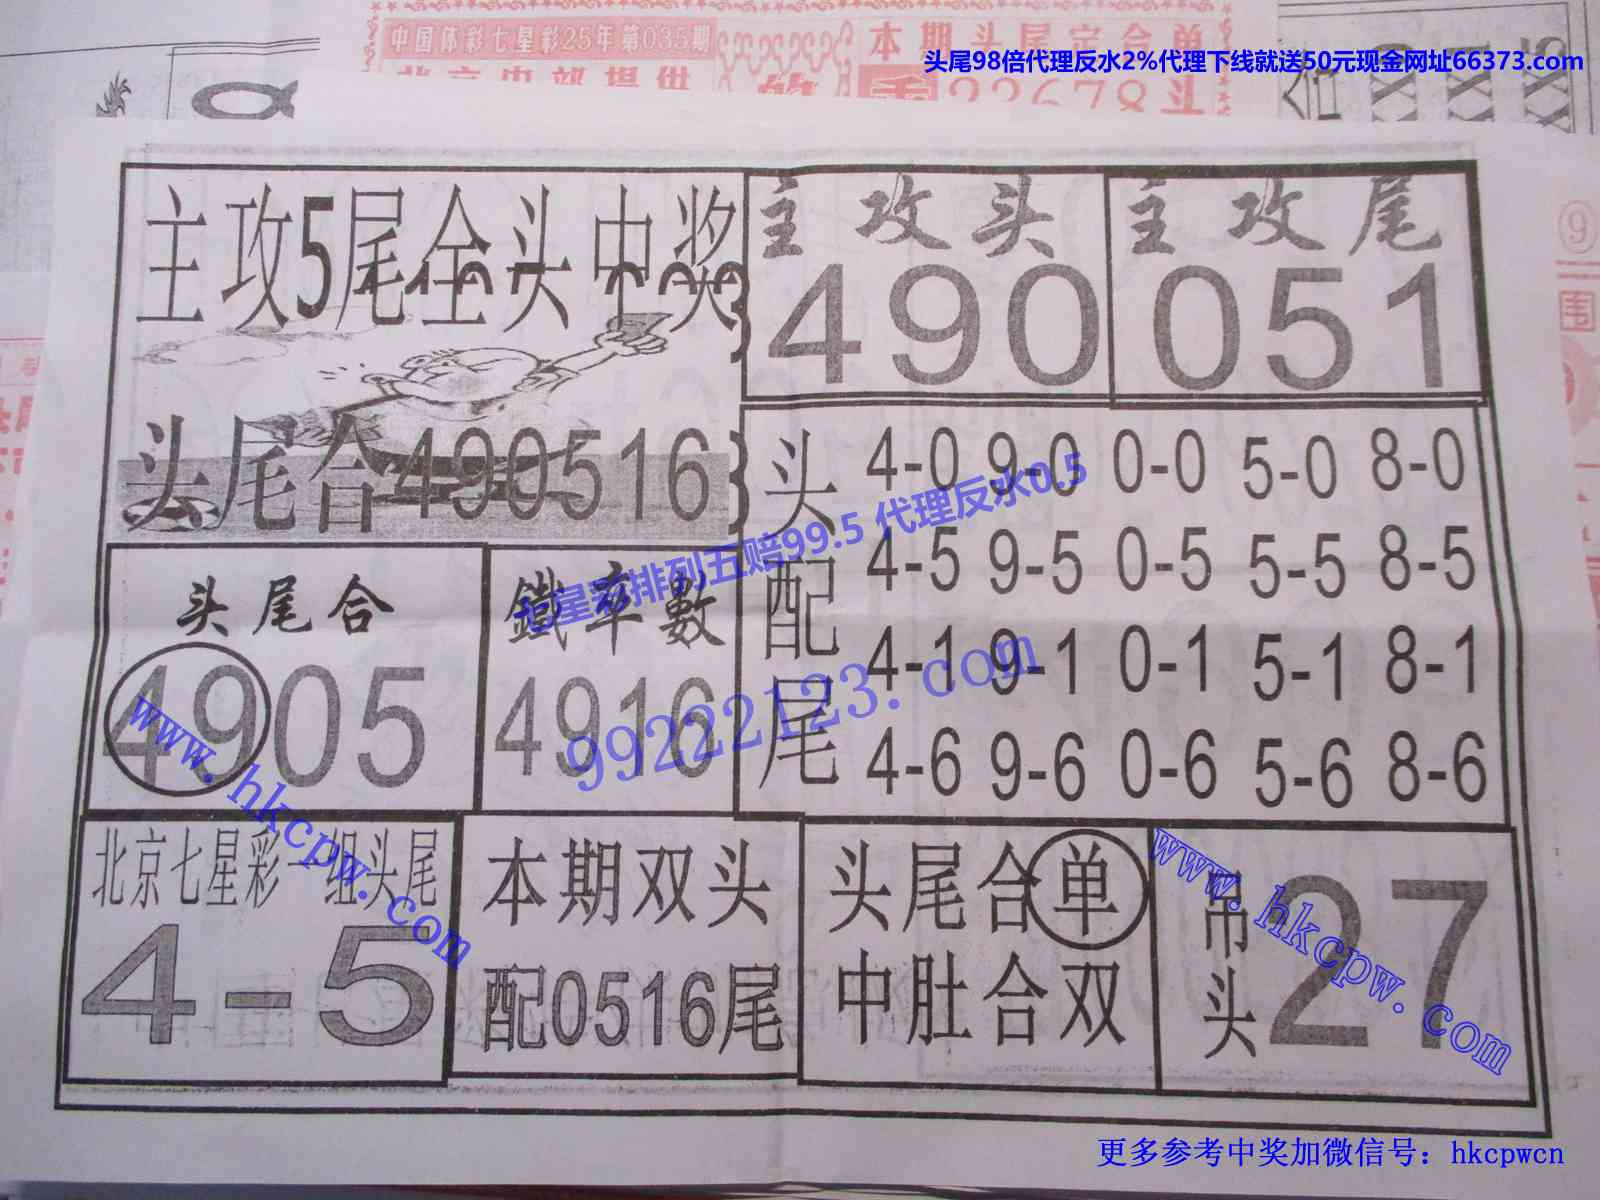 中国体彩七星彩25年第035期
本期头尾定合单
头尾98倍代理反水2%代理下线就送50元现金网址66373.com
主攻5尾全头中奖
主攻头
490
主攻尾
051
头尾合490516
头配尾
4-0 9-0 0-0 5-0 8-0
4-5 9-5 0-5 5-5 8-5
4-1 9-1 0-1 5-1 8-1
4-6 9-6 0-6 5-6 8-6
七星彩排列五赔99.5 代理反水0.5
头尾合
4905
鐵率數
4916
99222123.com
www.hkcpw.com
北京七星彩一组头尾
4-5
本期双头
配0516尾
头尾合单
中肚合双
吊头
27
www.hkcpw.com
更多参考中奖加微信号：hkcpwcn